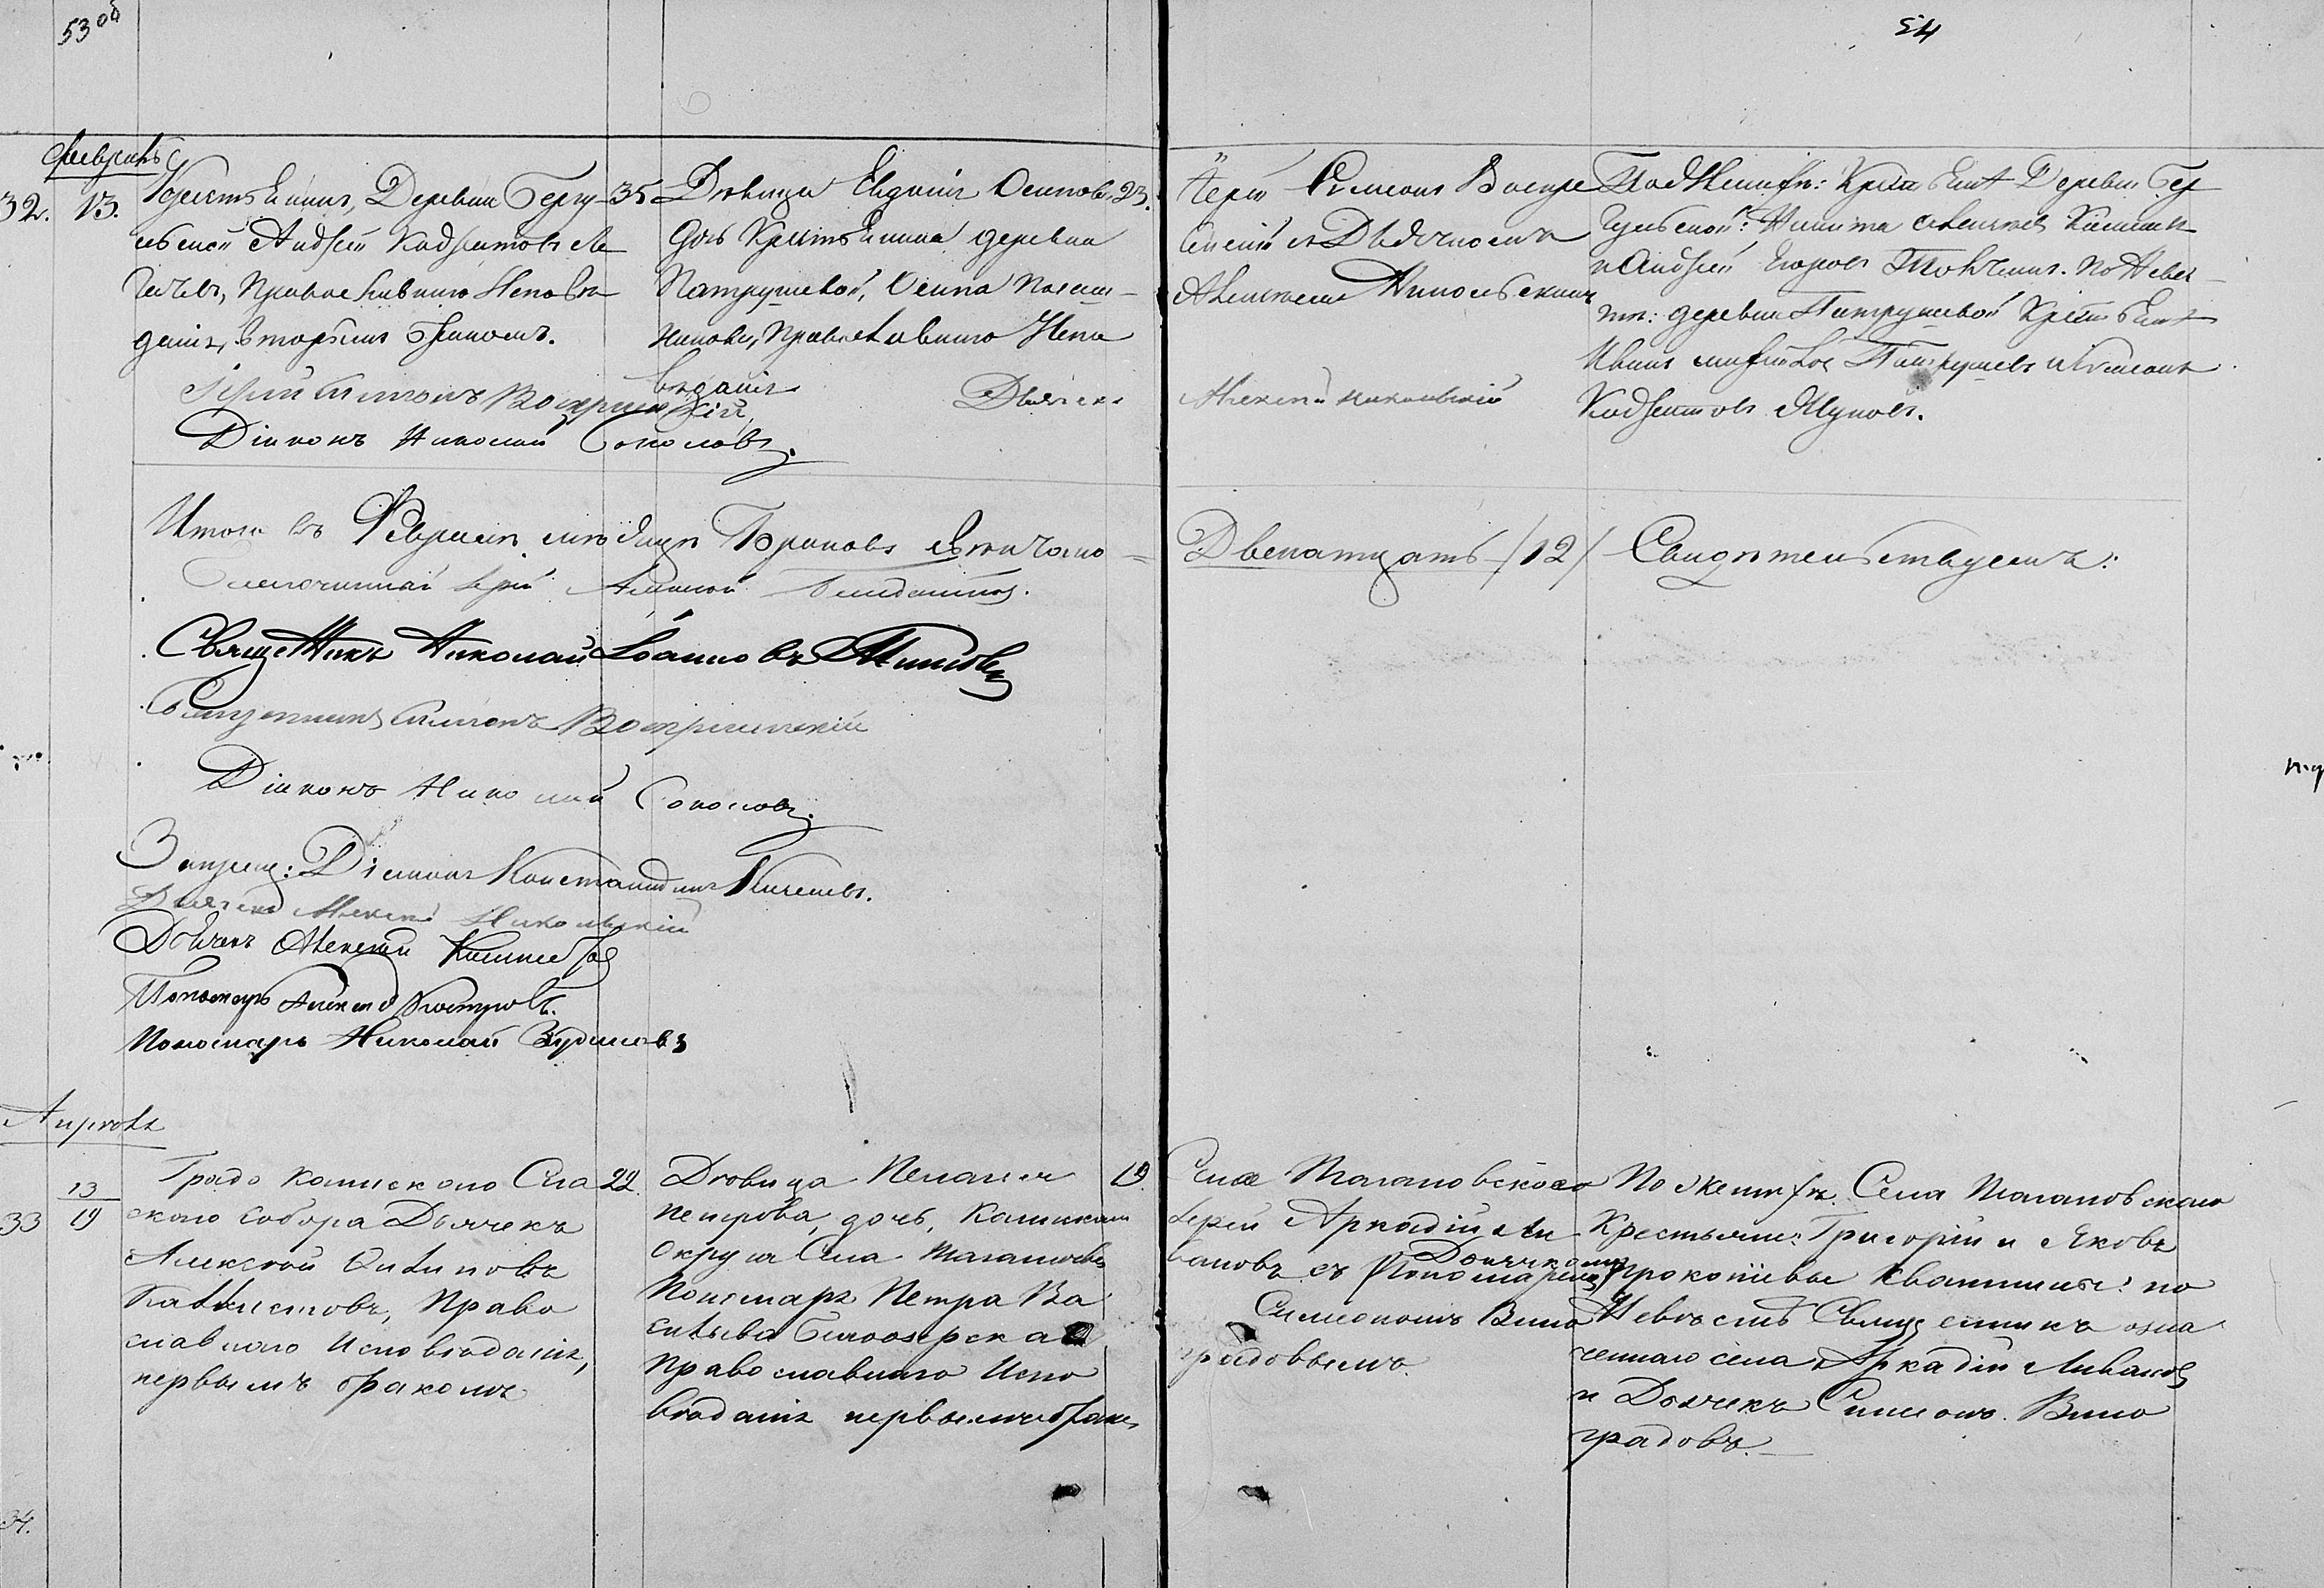 53 об
54
Февраль
32. 13.
Крестьянин, Деревни Бергу-
льской Андрей Кодратов Ле
гачев, Православнаго Исповѣ
данія, вторым браком.
35
Дѣвица Евдокия Осипова
дочь Крестьянина деревни
Патрушевой, Осипа
Православнаго Испо
вѣданія
23.
Іерей Симеон Воскре
сенский с Дьячкомъ
Алексеем Никольским
По Женихѣ: Крестьяне Деревни Бер
гульской: Никита
и Андрей Егоров По Невес
тѣ: деревни Патрушевой Крестьяне
Иван Патрушев и Симеон
Кодратов Жуков.
Іерей Симеонъ Воскресенскій
Дьячек Алексей Никольский
Діаконъ Николай Соколовъ.
Итого въ Февралѣ мѣсяцѣ Браковъ вѣнчано = Двенатцать /12/ Свидѣтельствуемъ:
Благочинный Іерей Алексей
Священникъ Николай Іоанновъ Поповъ
Священникъ Симеонъ Воскресенский
Діаконъ Николай Соколовъ.
Запрещ: Діаконъ Констандинъ
Дьячекъ Алексей Никольский
Дьячекъ Алексей
Пономарь Алексей
Пономарь Николай
Апрель
33 13/19
Градо Каинскаго Спа
скаго Собора Дьячекъ
Алексѣй Филиповъ
Каллистовъ, Право
славнаго Исповѣданія,
первымъ бракомъ
22.
Дѣвица Пелагия
Петрова, дочь, Каинскаго
Округа Села
Пономаря Петра Ва
сильева Белоозерска
Православнаго Испо
вѣданія первымъ браком
19.
Села
Іерей Аркадій Ли
вановъ съ Пономаремъ Дьячкомъ
Симеономъ Вино
градовымъ.
По женихѣ. Села
Крестьяне: Григорій и Яковъ
Прокопіевы Квашнины: по
Невѣстѣ Священникъ озна
ченнаго села Аркадій Ливанов
и Дьячекъ Симеонъ Вино
градовъ.
34.